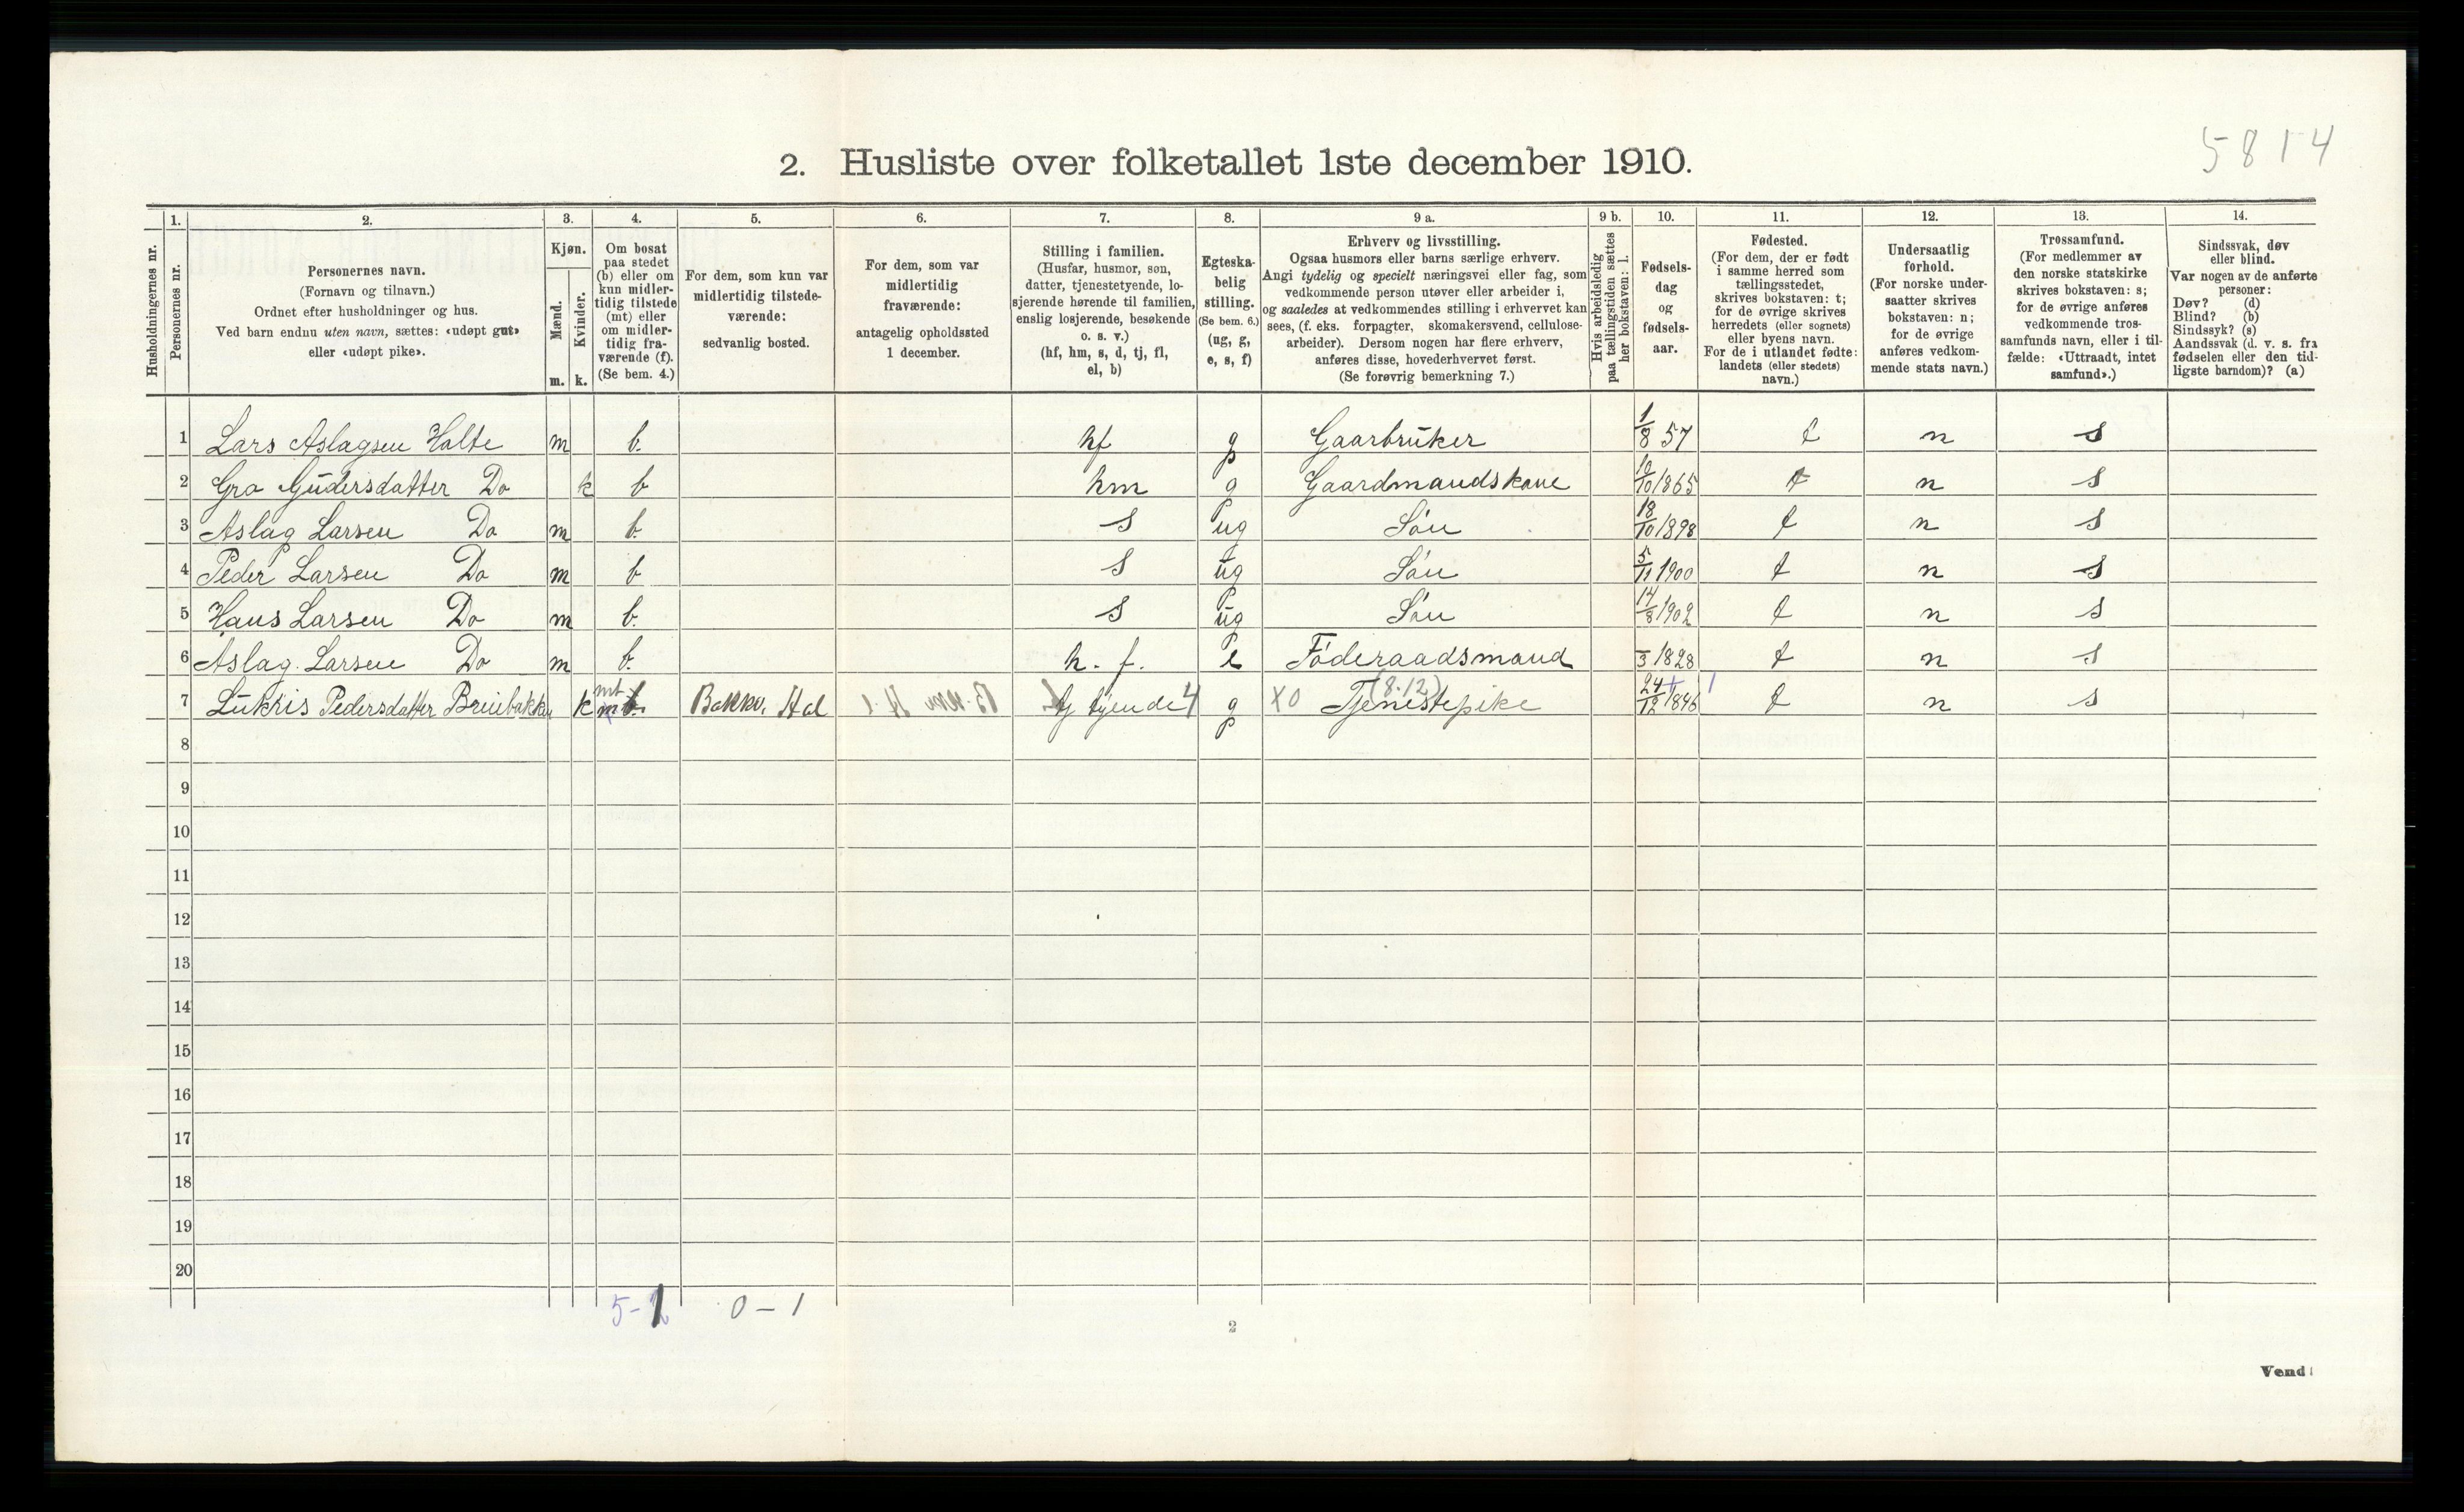 5814
2. Husliste over folketallet 1ste december 1910.
Husholdningernes nr.
1. Personernes nr.
2. Personernes navn.
(Fornavn og tilnavn.)
Ordnet efter husholdninger og hus.
Ved barn endnu uten navn, sættes: «udøpt gut»
eller «udøpt pike».
3. Kjøn.
Mænd. m.
Kvinder. k.
4. Om bosat
paa stedet
(b) eller om
kun midler-
tidig tilstede
(mt) eller
om midler-
tidig fra-
værende (f).
(Se bem. 4.)
5. For dem, som kun var
midlertidig tilstede-
værende:
sedvanlig bosted.
6. For dem, som var
midlertidig
fraværende:
antagelig opholdssted
1 december.
7. Stilling i familien.
(Husfar, husmor, søn,
datter, tjenestetyende, lo-
sjerende hørende til familien,
enslig losjerende, besøkende
o. s. v.)
(hf, hm, s, d, tj, fl,
el, b)
8. Egteska-
belig
stilling.
(Se bem. 6.)
(ug, g,
e, s, f)
9 a. Erhverv og livsstilling.
Ogsaa husmors eller barns særlige erhverv.
Angi tydelig og specielt næringsvei eller fag, som
vedkommende person utøver eller arbeider i,
og saaledes at vedkommendes stilling i erhvervet kan
sees, (f. eks. forpagter, skomakersvend, cellulose-
arbeider). Dersom nogen har flere erhverv,
anføres disse, hovederhvervet først.
(Se forøvrig bemerkning 7.)
9 b. Hvis arbeidsledig
paa tællingstiden sættes
her bokstaven: l.
10. Fødsels-
dag
og
fødsels-
aar.
11. Fødested.
(For dem, der er født
i samme herred som
tællingsstedet,
skrives bokstaven: t;
for de øvrige skrives
herredets (eller sognets)
eller byens navn.
For de i utlandet fødte:
landets (eller stedets)
navn.)
12. Undersaatlig
forhold.
(For norske under-
saatter skrives
bokstaven: n;
for de øvrige
anføres vedkom-
mende stats navn.)
13. Trossamfund.
(For medlemmer av
den norske statskirke
skrives bokstaven: s;
for de øvrige anføres
vedkommende tros-
samfunds navn, eller i til-
fælde: «Uttraadt, intet
samfund».)
14. Sindssvak, døv
eller blind.
Var nogen av de anførte
personer:
Døv? (d)
Blind? (b)
Sindssyk? (s)
Aandssvak (d. v. s. fra
fødselen eller den tid-
ligste barndom)? (a)
1 Lars Aslagsen Holte m b. hf g Gaarbruker 1/8 57 t n s
2 Gro Gudersdatter Do k b hm g Gaardmandskone 10/10 1865 t n s
3 Aslag Larsen Do m b. s ug Søn 18/10 1898 t n s
4 Peder Larsen Do m b s ug Søn 5/11 1900 t n s
5 Hans Larsen Do m b. s ug Søn 14/8 1902 t n s
6 Aslag Larsen Do m b. h. f. e Föderaadsmand /3 1828 t n s
7 Lukris Pedersdatter k mt b. tj tyende 4 g XO Tjenestepike (8.12) 24/12 1846 t n s
8
9
10
11
12
13
14
15
16
17
18
19
20
5-1 0-1
2
Vend!